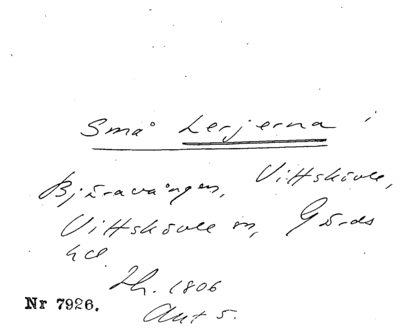 Små Lerjerna i
Bjäravången, Vittskövle,
Vittskövle sn, Gärds
hd
Lh. 1806
Akt 5.
Nr 7926.